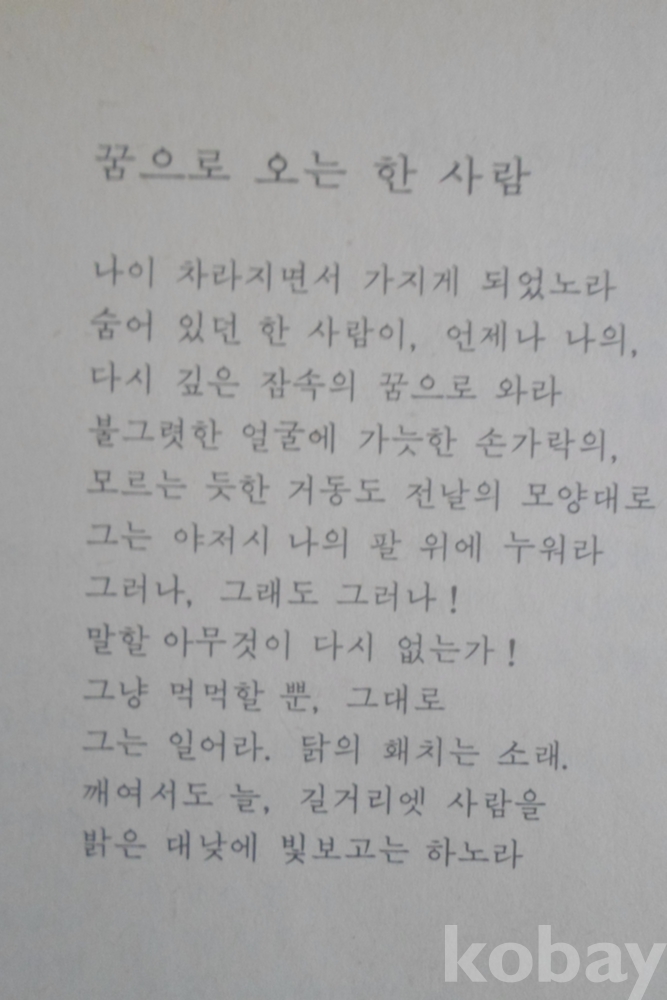 꿈으로 오는 한 사람
나이 차라지면서 가지게 되었노라
숨어 있던 한 사람이, 언제나 나의,
다시 깊은 잠속의 꿈으로 와라
불그렷한 얼굴에 가늣한 손가락의,
모르는 듯한 거동도 전날의 모양대로
그는 야저시 나의 팔 위에 누워라
그러나, 그래도 그러나!
말할 아무것이 다시 없는가!
그냥 먹먹할 뿐, 그대로
그는 일어라. 닭의 홰치는 소래.
깨여서도 늘, 길거리엣 사람을
밝은 대낮에 빛보고는 하노라
kobay